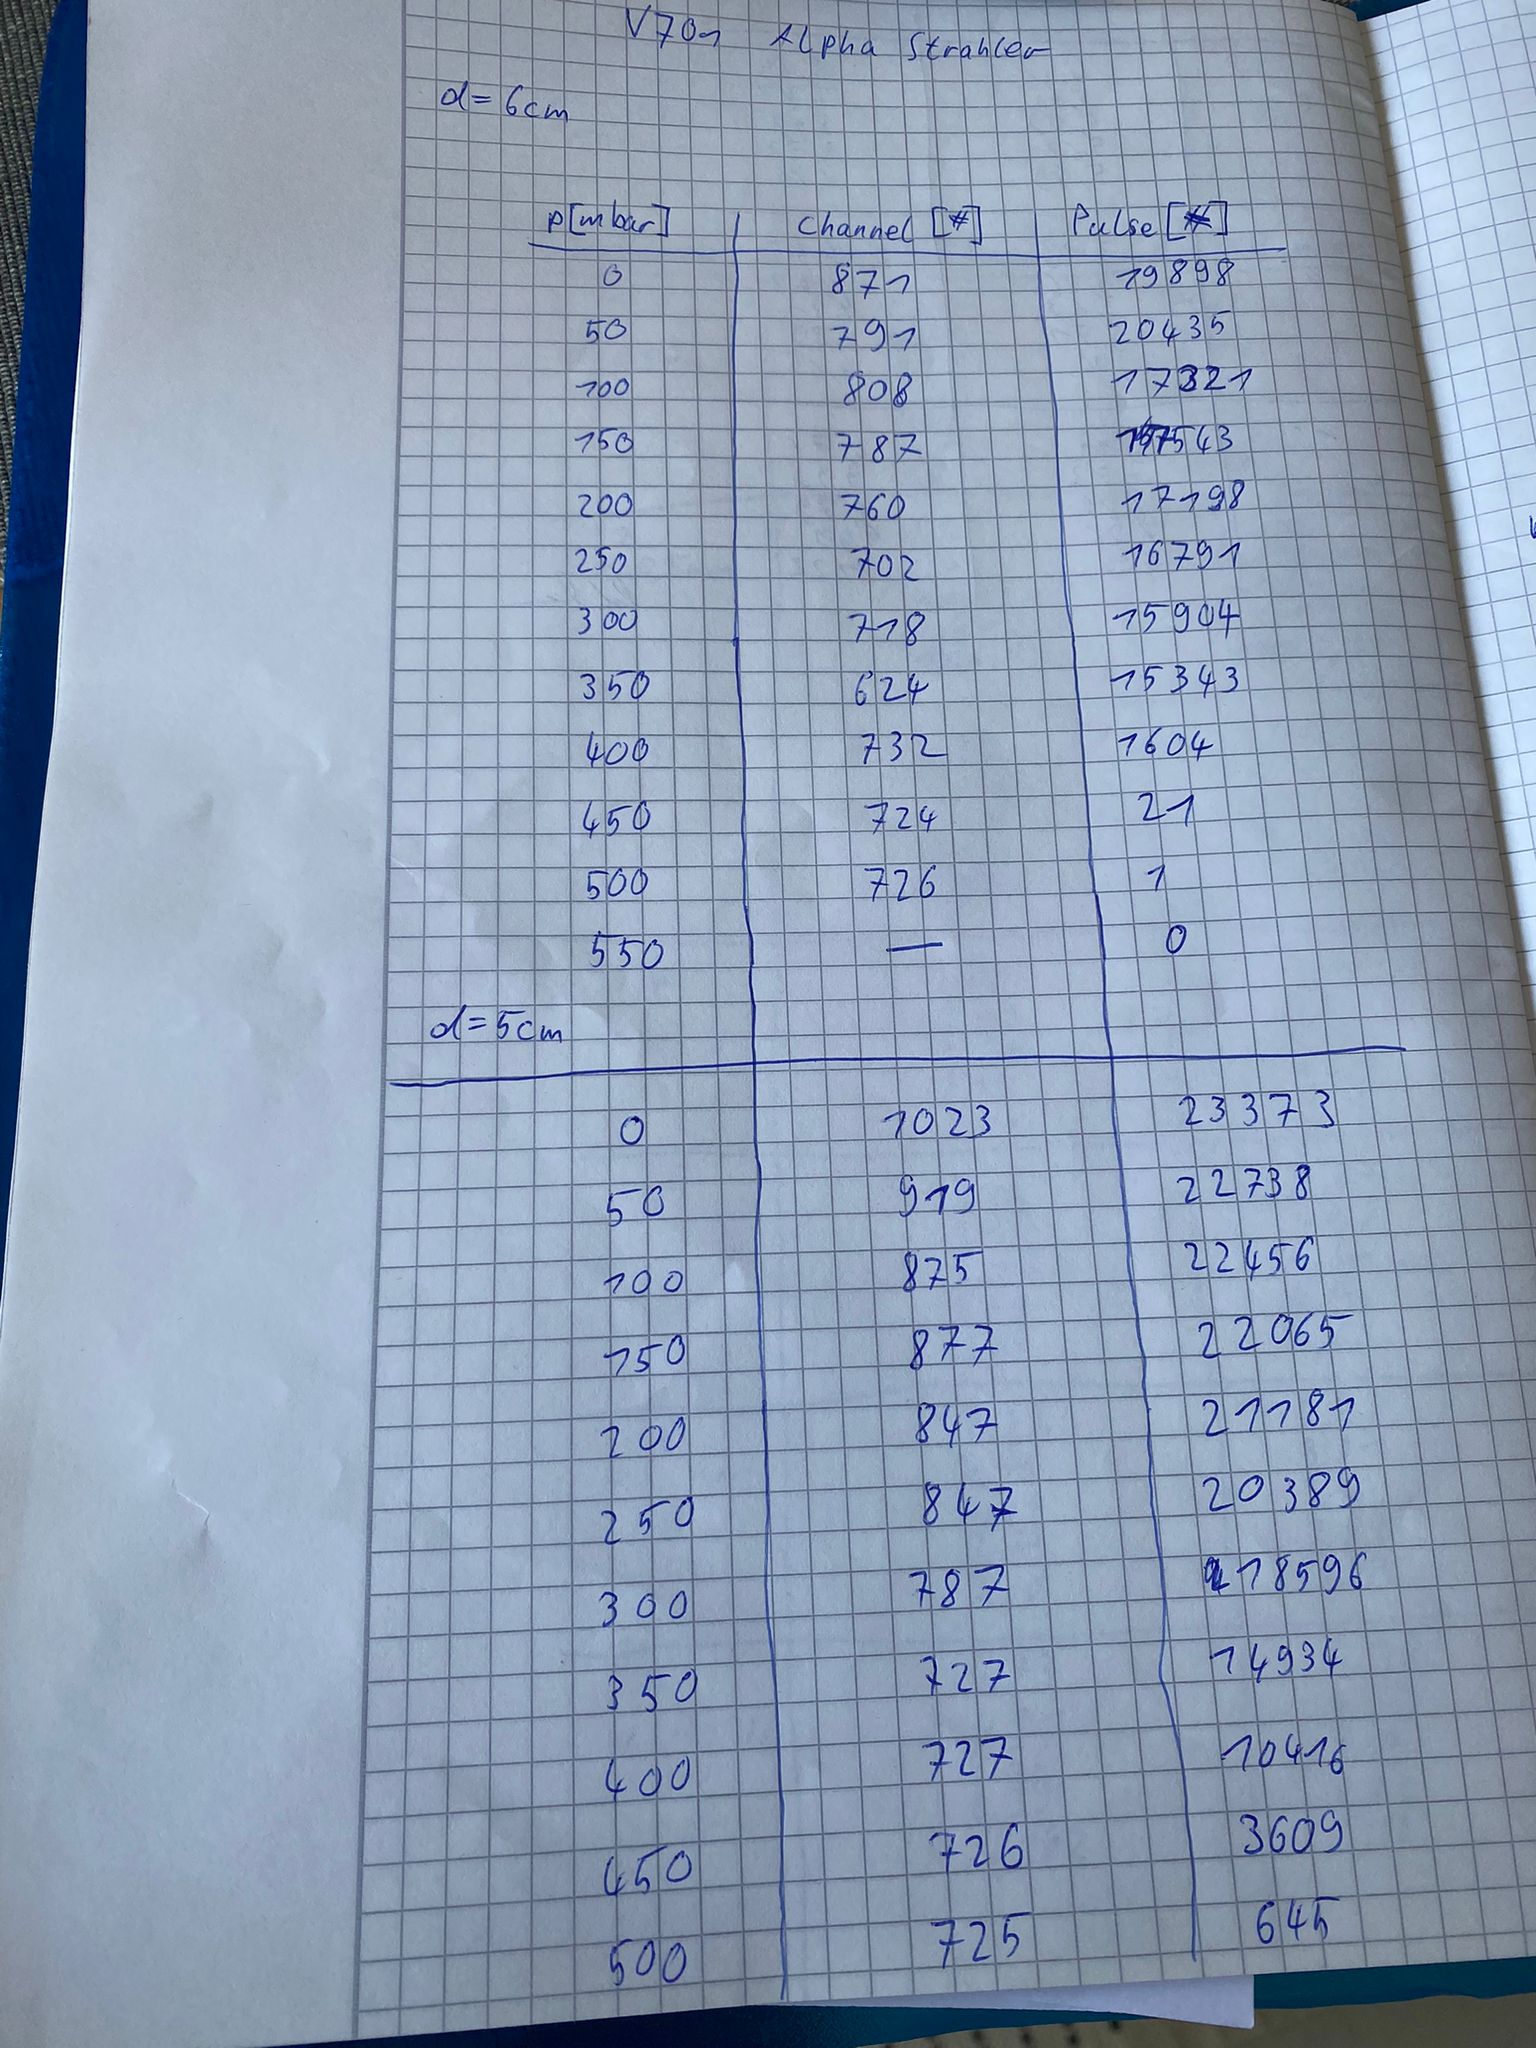 V701 Alpha Strahler
d=6cm
p[mbar] Channel [#] Pulse [#]
0 871 19898
50 791 20435
100 808 17321
150 787 17543
200 760 17198
250 702 16791
300 718 15904
350 624 15343
400 732 1604
450 724 21
500 726 1
550 — 0
d=5cm
0 1023 23373
50 919 22738
100 875 22456
150 877 22065
200 847 21181
250 847 20389
300 787 18596
350 727 14934
400 727 10416
450 726 3609
500 725 645